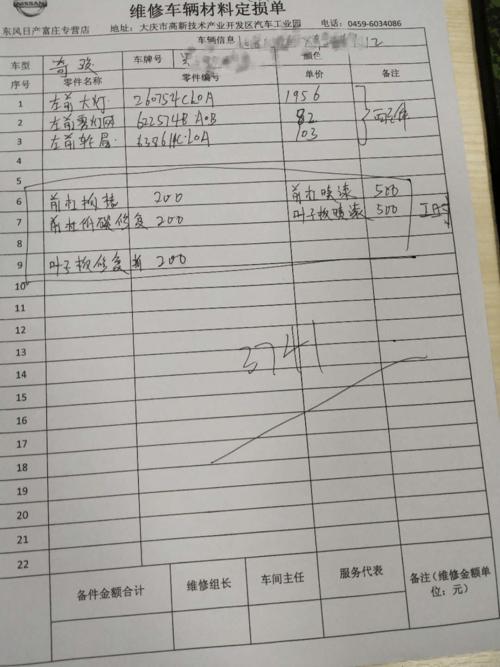 NISSAN
维修车辆材料定损单
东风日产富庄专营店 地址：大庆市高新技术产业开发区汽车工业园 电话：0459-6034086
车辆信息
车型 奇骏 车牌号 颜色
序号 零件名称 零件编号 单价 备注
1 左前大灯 260754CL0A 1956
2 左前雾灯网 622574B A0B 82
3 左前轮眉 63861 4CL0A 103
4
5
6 前杠拆装 200 前杠喷漆 500
7 前杠修复 200 叶子板喷漆 500
8
9 叶子板修复 200
10
11
12
13 3741
14
15
16
17
18
19
20
21
22
备件金额合计 维修组长 车间主任 服务代表 备注（维修金额单位：元）